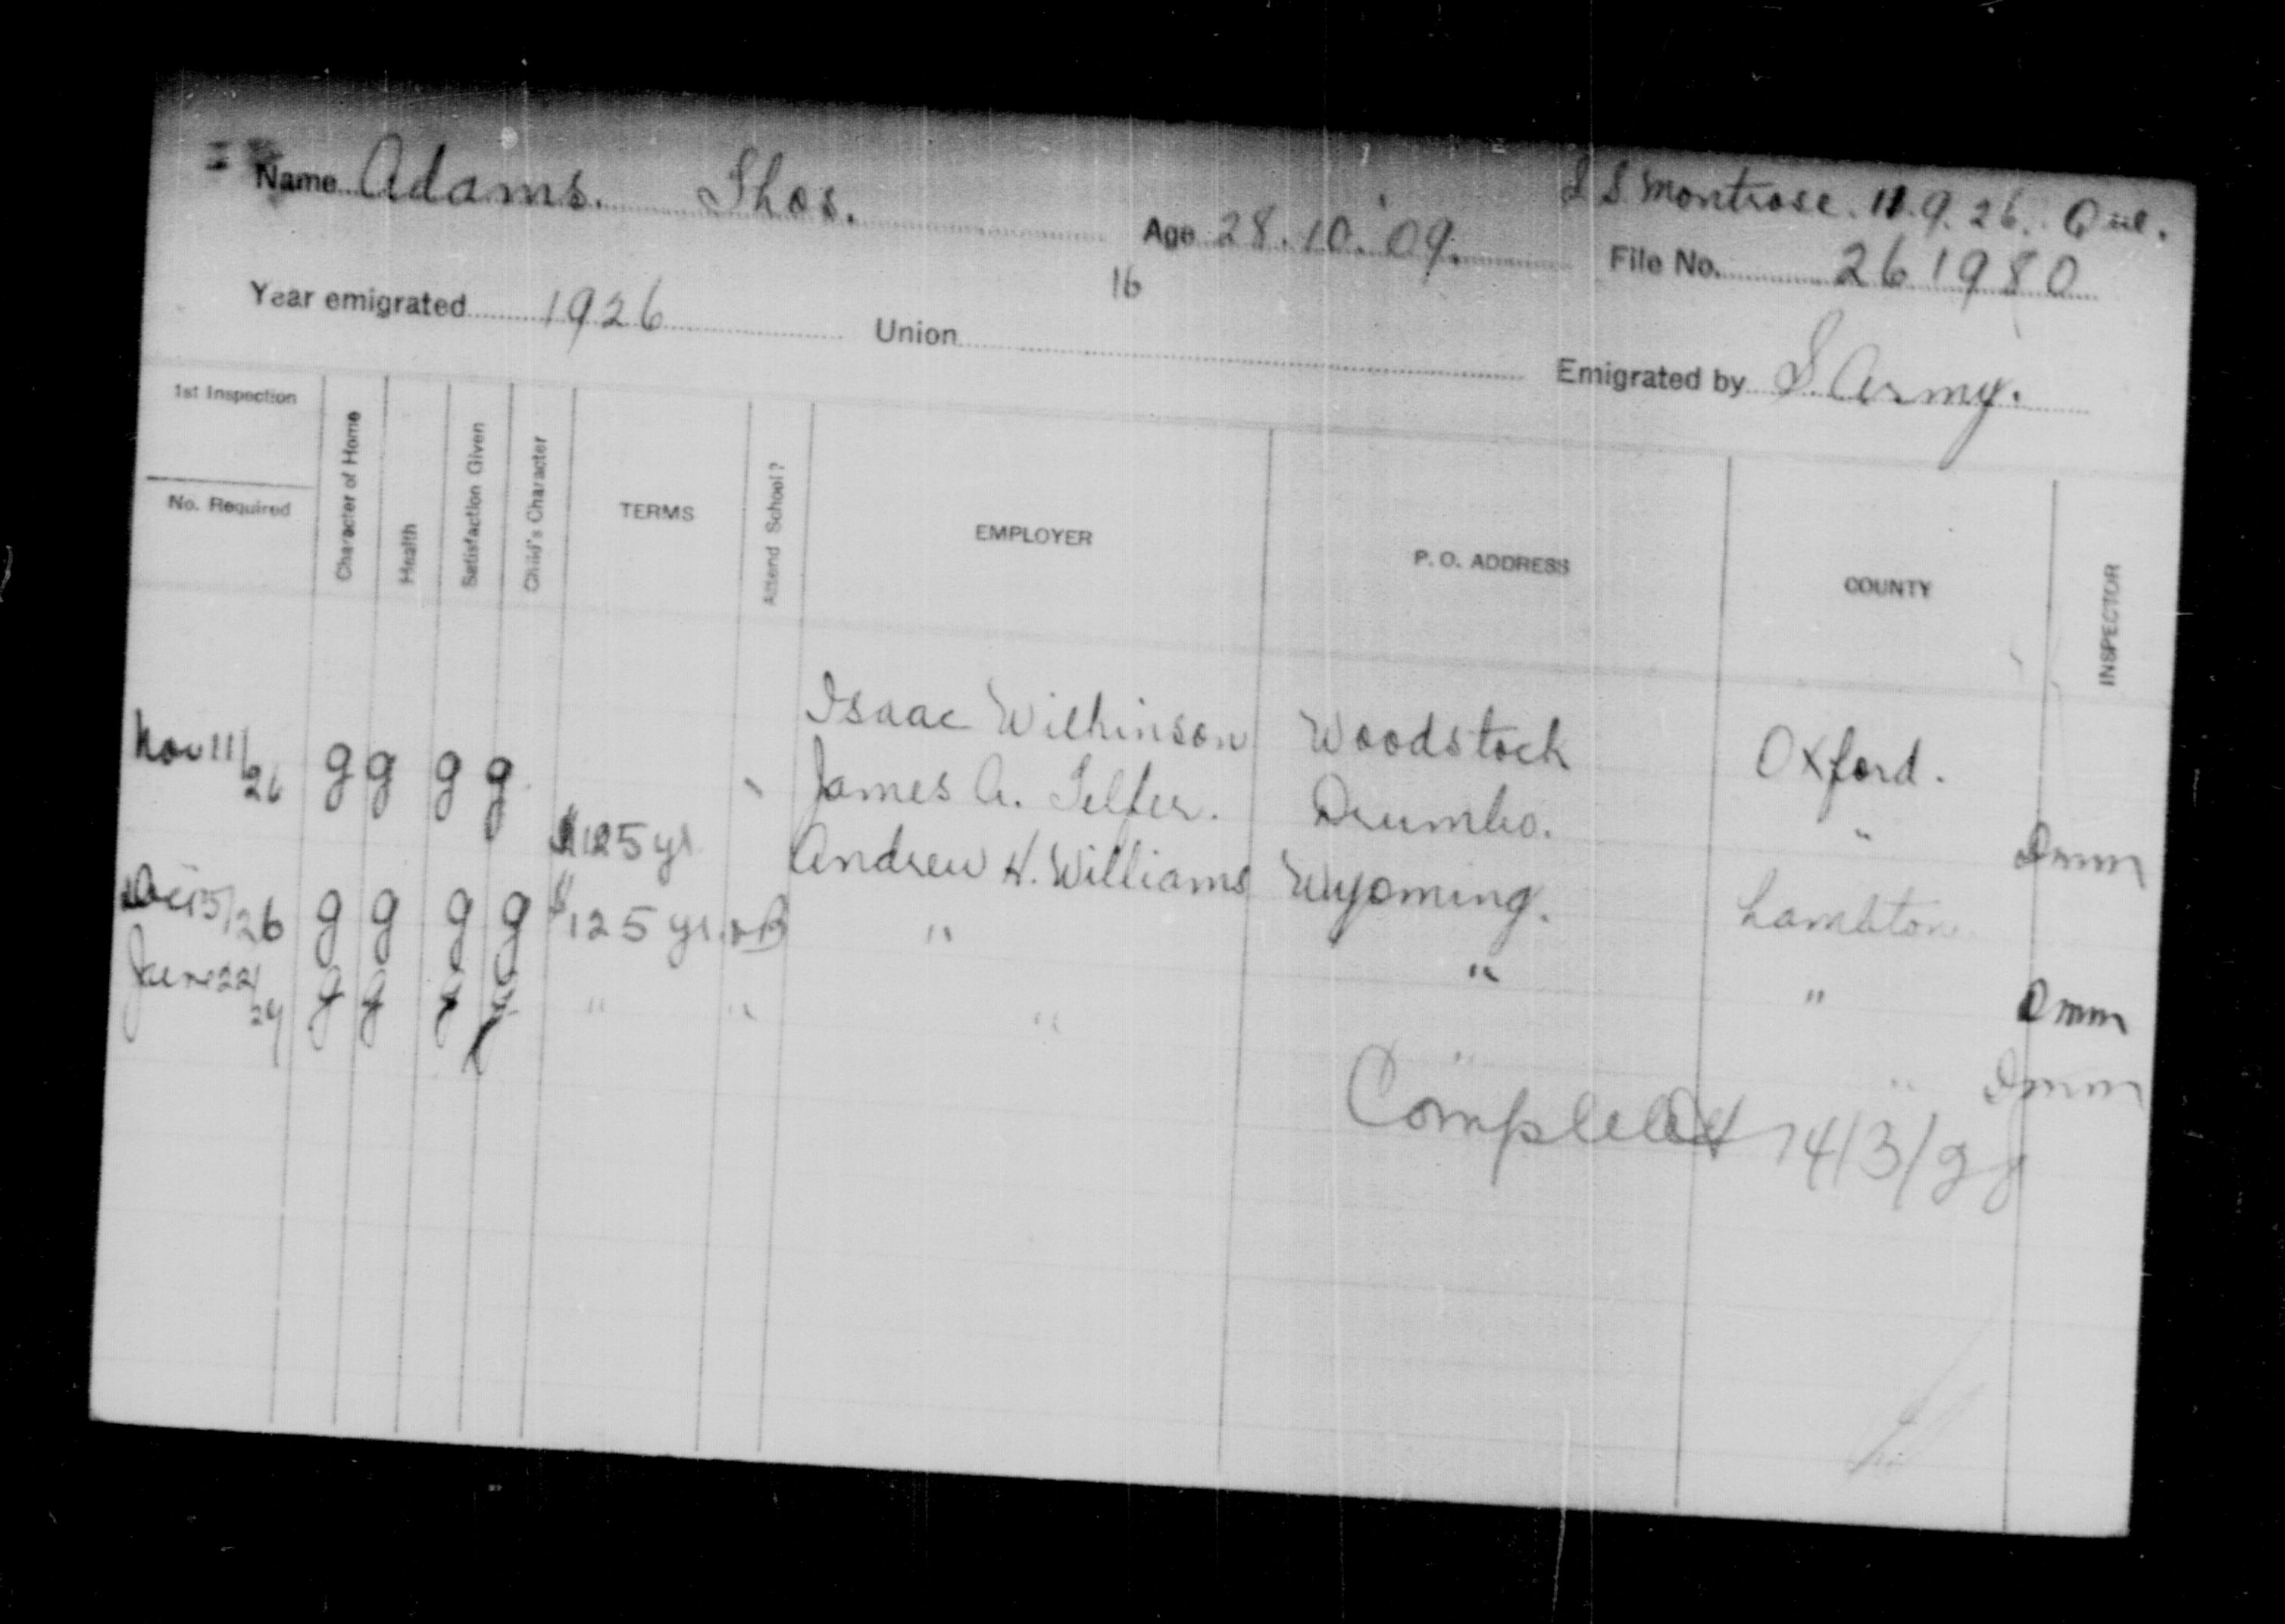 Name Adams. Thos. Age 28.10.'09. S S Montrose. 11.9.26. Que.
16 File No. 261980
Year emigrated 1926 Union Emigrated by S. Army.
1st Inspection
No. Required
Character of Home
Health
Satisfaction Given
Child's Character
TERMS
Attend School?
EMPLOYER
P. O. ADDRESS
COUNTY
INSPECTOR
Isaac Wilkinson Woodstock Oxford.
Nov 11/26 g g g g James A. Telfer. Drumbo. " Dmm
$125 yr Andrew H. Williams Wyoming. Lambton
Dec 15/26 g g g g $125 yr. " " " Dmm
June 22/27 g g g g " " " " " Dmm
Completed 14/3/28